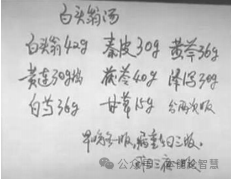 白头翁汤
白头翁42g 秦皮30g 黄芩36g
黄连30g 茯苓40g 泽泻30g
白芍36g 甘草15g 分两次服
早晚各一服,病重日三服。
公众号·三 智慧